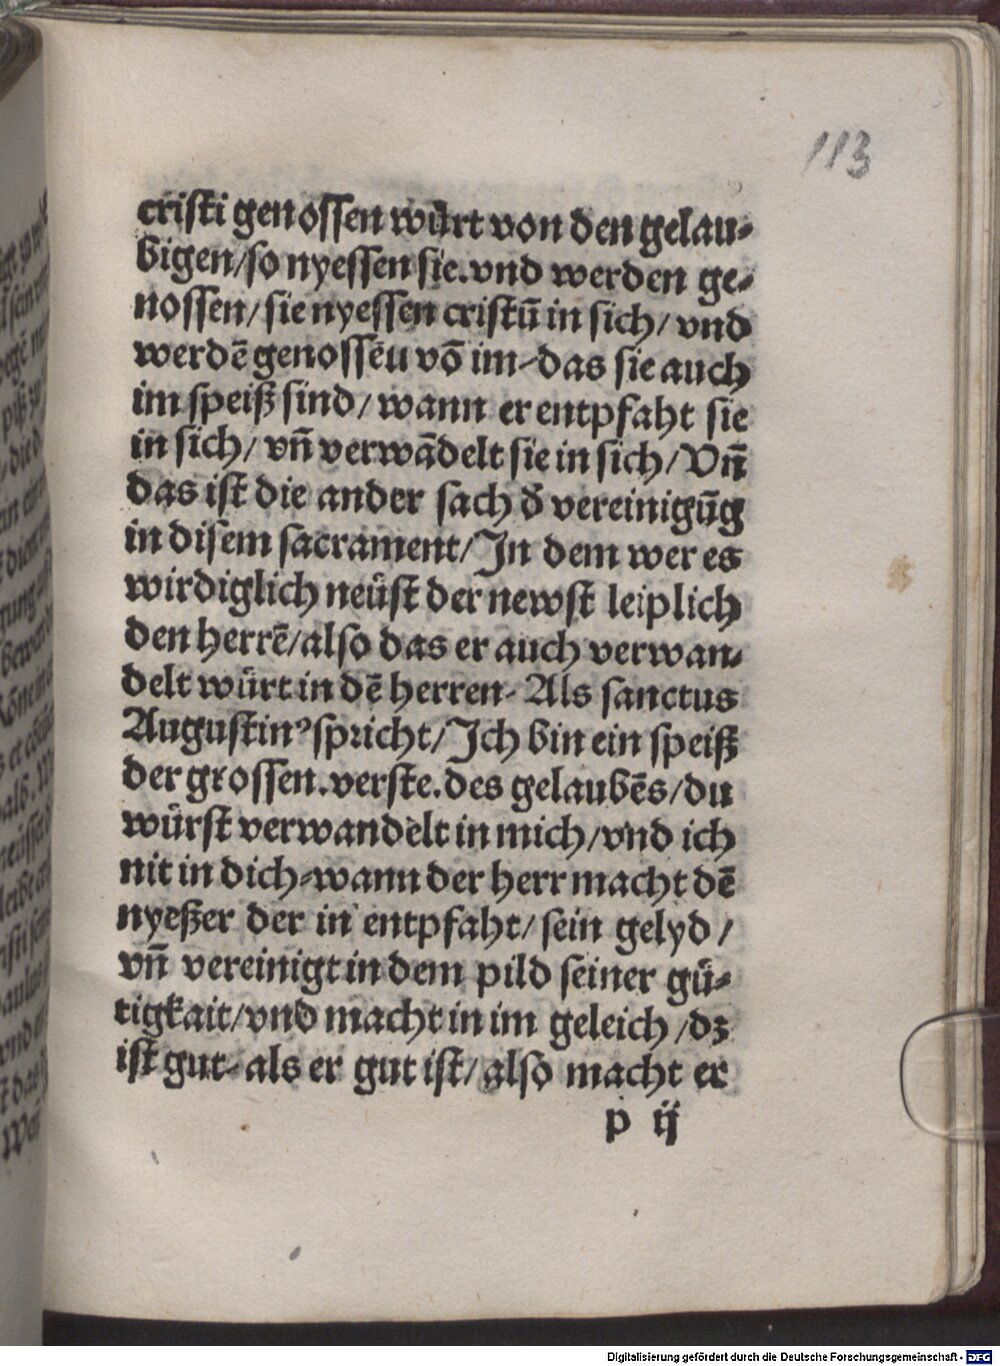 113
cristi genossen würt von den gelau-
bigen/so nyessen sie.vnd werden ge-
nossen/sie nyessen cristū in sich/ vnd
werdē genossēu vō im-das sie auch
im speiß sind/wann er entpfaht sie
in sich/ vn̄ verwādelt sie in sich/Vn̄
das ist die ander sach d̄ vereinigūg
in disem sacrament/In dem wer es
wirdiglich neüst der newst leiplich
den herrē/also das er auch verwan-
delt würt in dē herren- Als sanctus
Augustinꝰ spricht/Ich bin ein speiß
der grossen.verste.des gelaubēs/du
würst verwandelt in mich/vnd ich
nit in dich-wann der herr macht dē
nyeßer der in entpfaht/sein gelyd/
vn̄ vereinigt in dem pild seiner gü-
tigkait/vnd macht in im geleich/dꝫ
ist gut-als er gut ist/also macht er
p ij
Digitalisierung gefördert durch die Deutsche Forschungsgemeinschaft - DFG